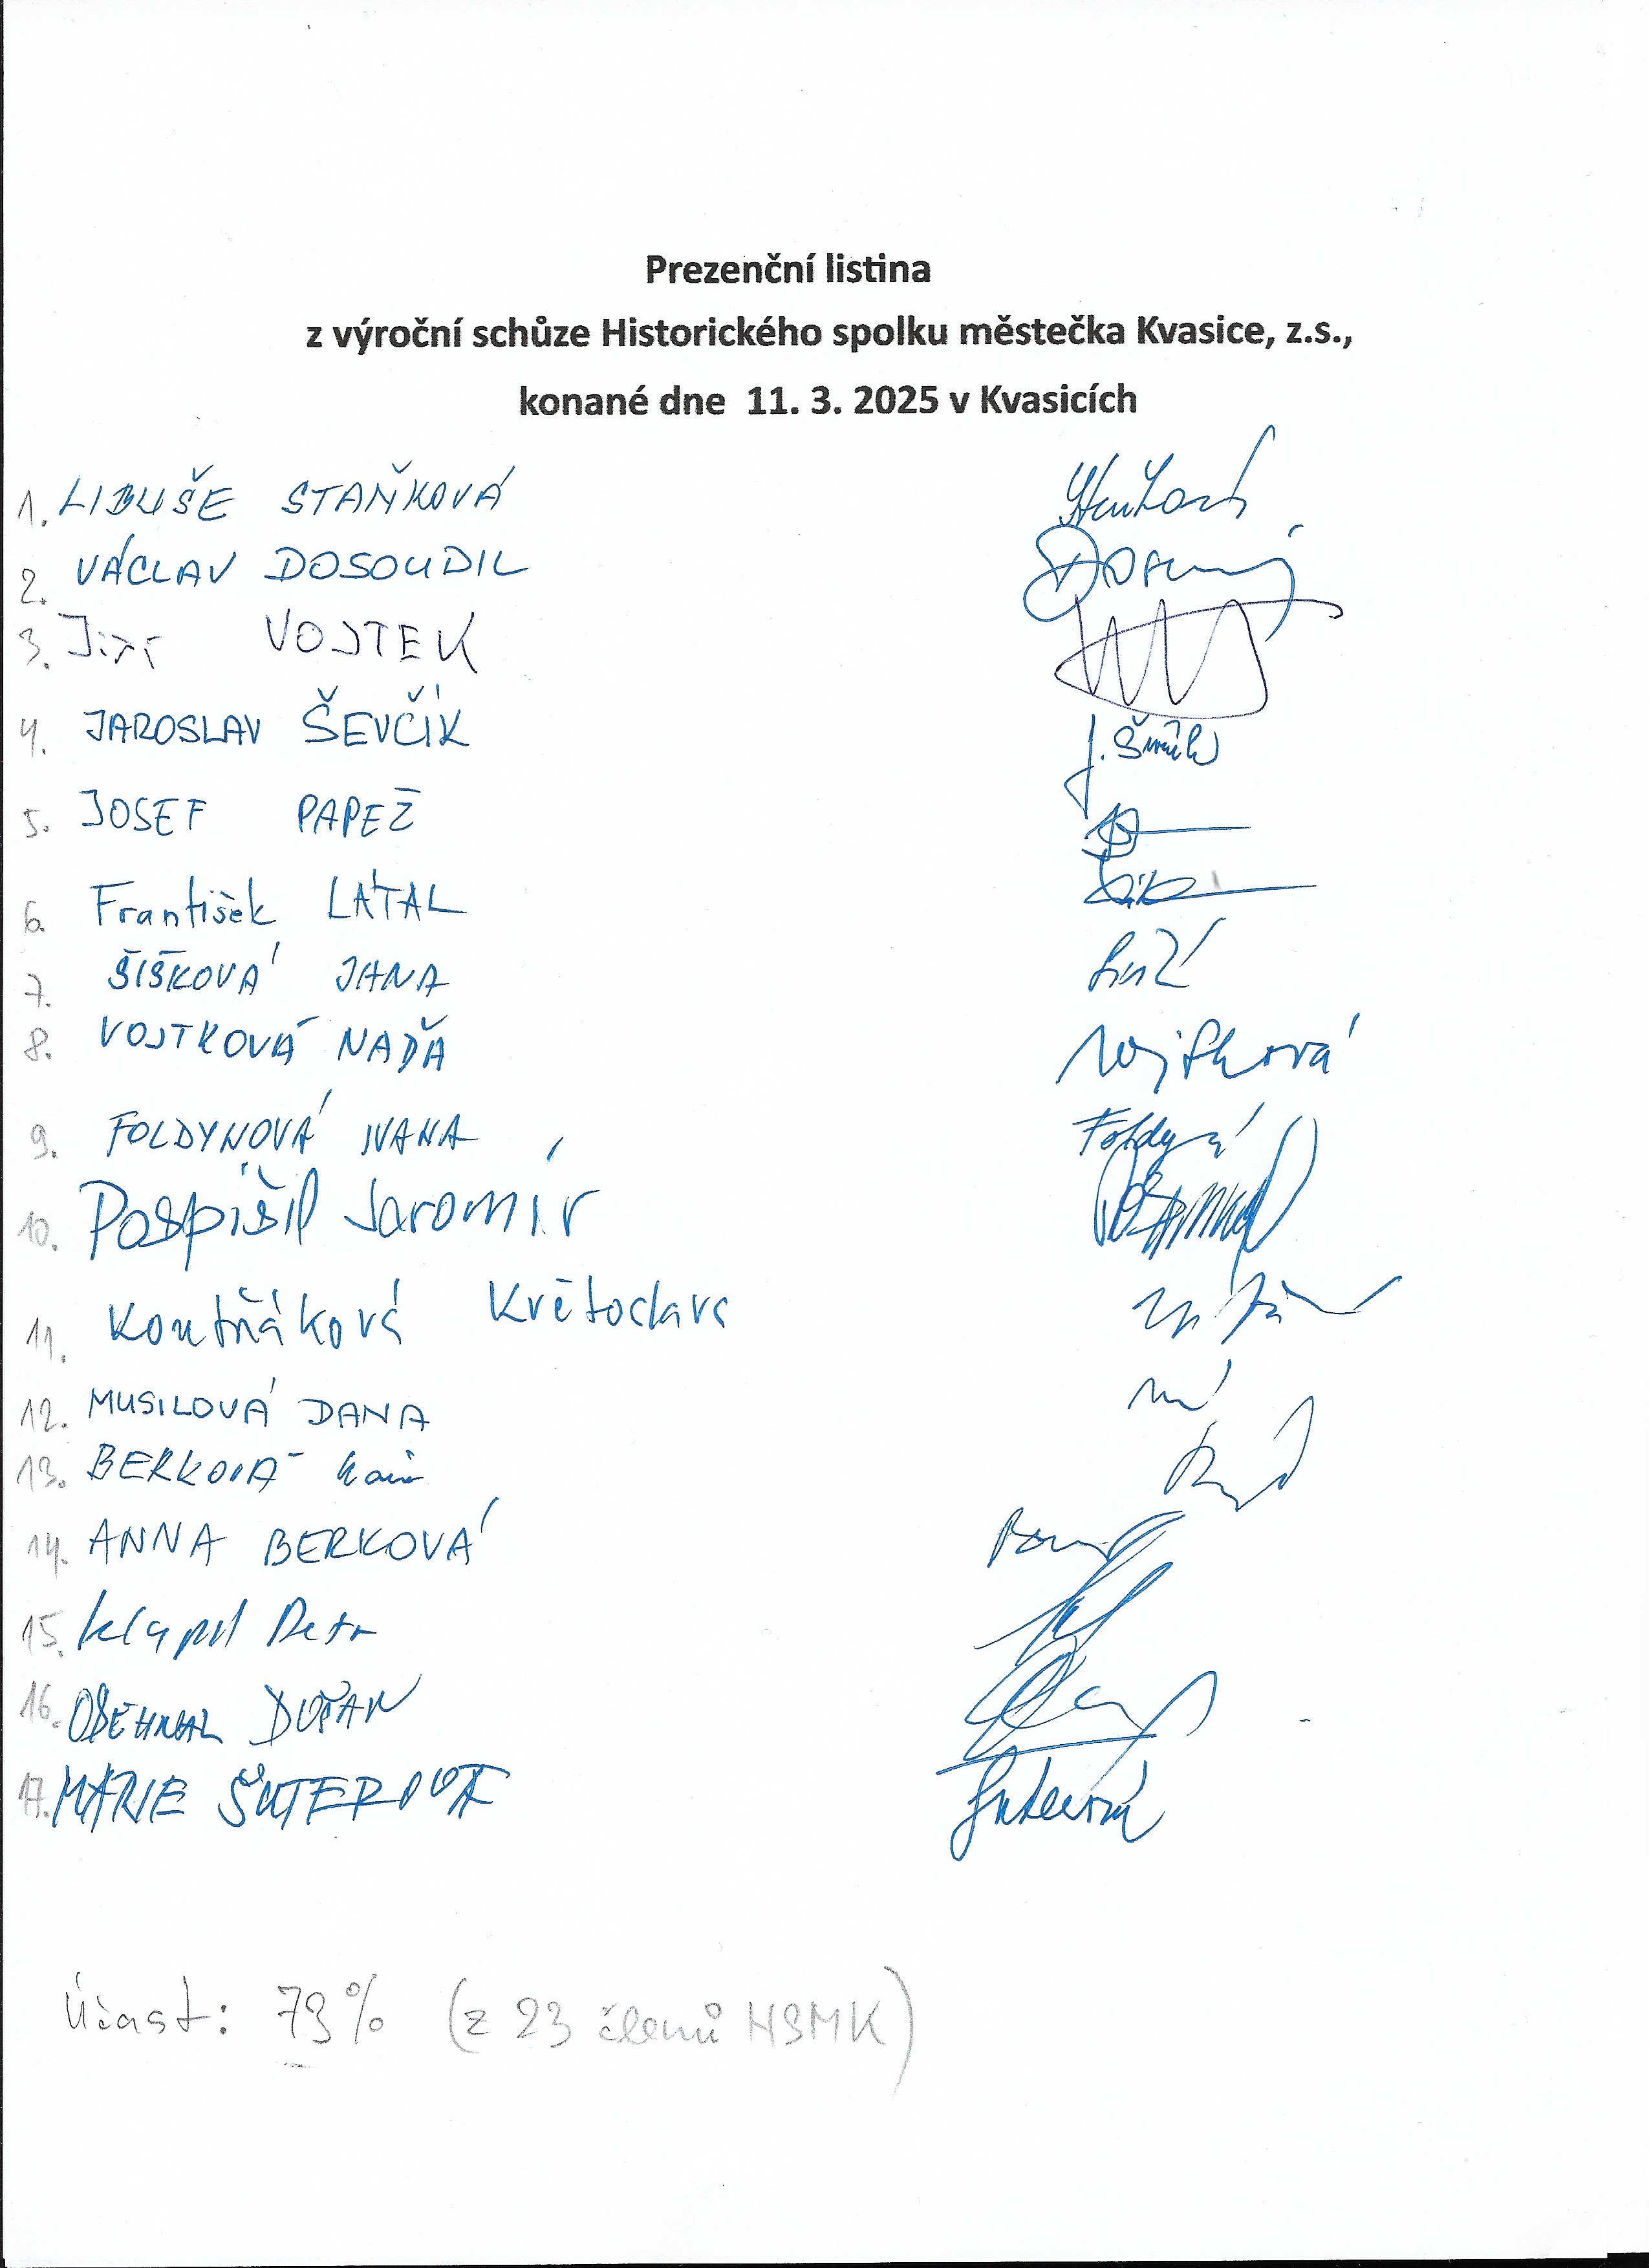 Prezenční listina
z výroční schůze Historického spolku městečka Kvasice, z.s.,
konané dne 11. 3. 2025 v Kvasicích
1. LIBUŠE STAŇKOVÁ
2. VÁCLAV DOSOUDIL
3. Jiří VOJTEK
4. JAROSLAV ŠEVČÍK J. Ševčík
5. JOSEF PAPEŽ
6. František LÁTAL
7. ŠIŠKOVÁ JANA
8. VOJTKOVÁ NAĎA Vojtková
9. FOLDYNOVÁ IVANA
10. Pospíšil Jaromír
11. Koutňáková Květoslava
12. MUSILOVÁ DANA
13. BERKOVÁ
14. ANNA BERKOVÁ
15. Klapil Petr
16. OBEHNAL DUŠAN
17. MARIE ŠUTEROVÁ Šuterová
Účast: 73% (z 23 členů HSMK)